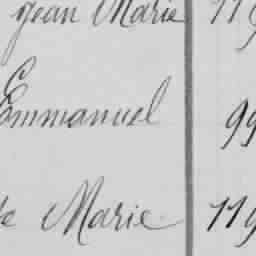 Jean Marie 119
Emmanuel 99
Marie 119